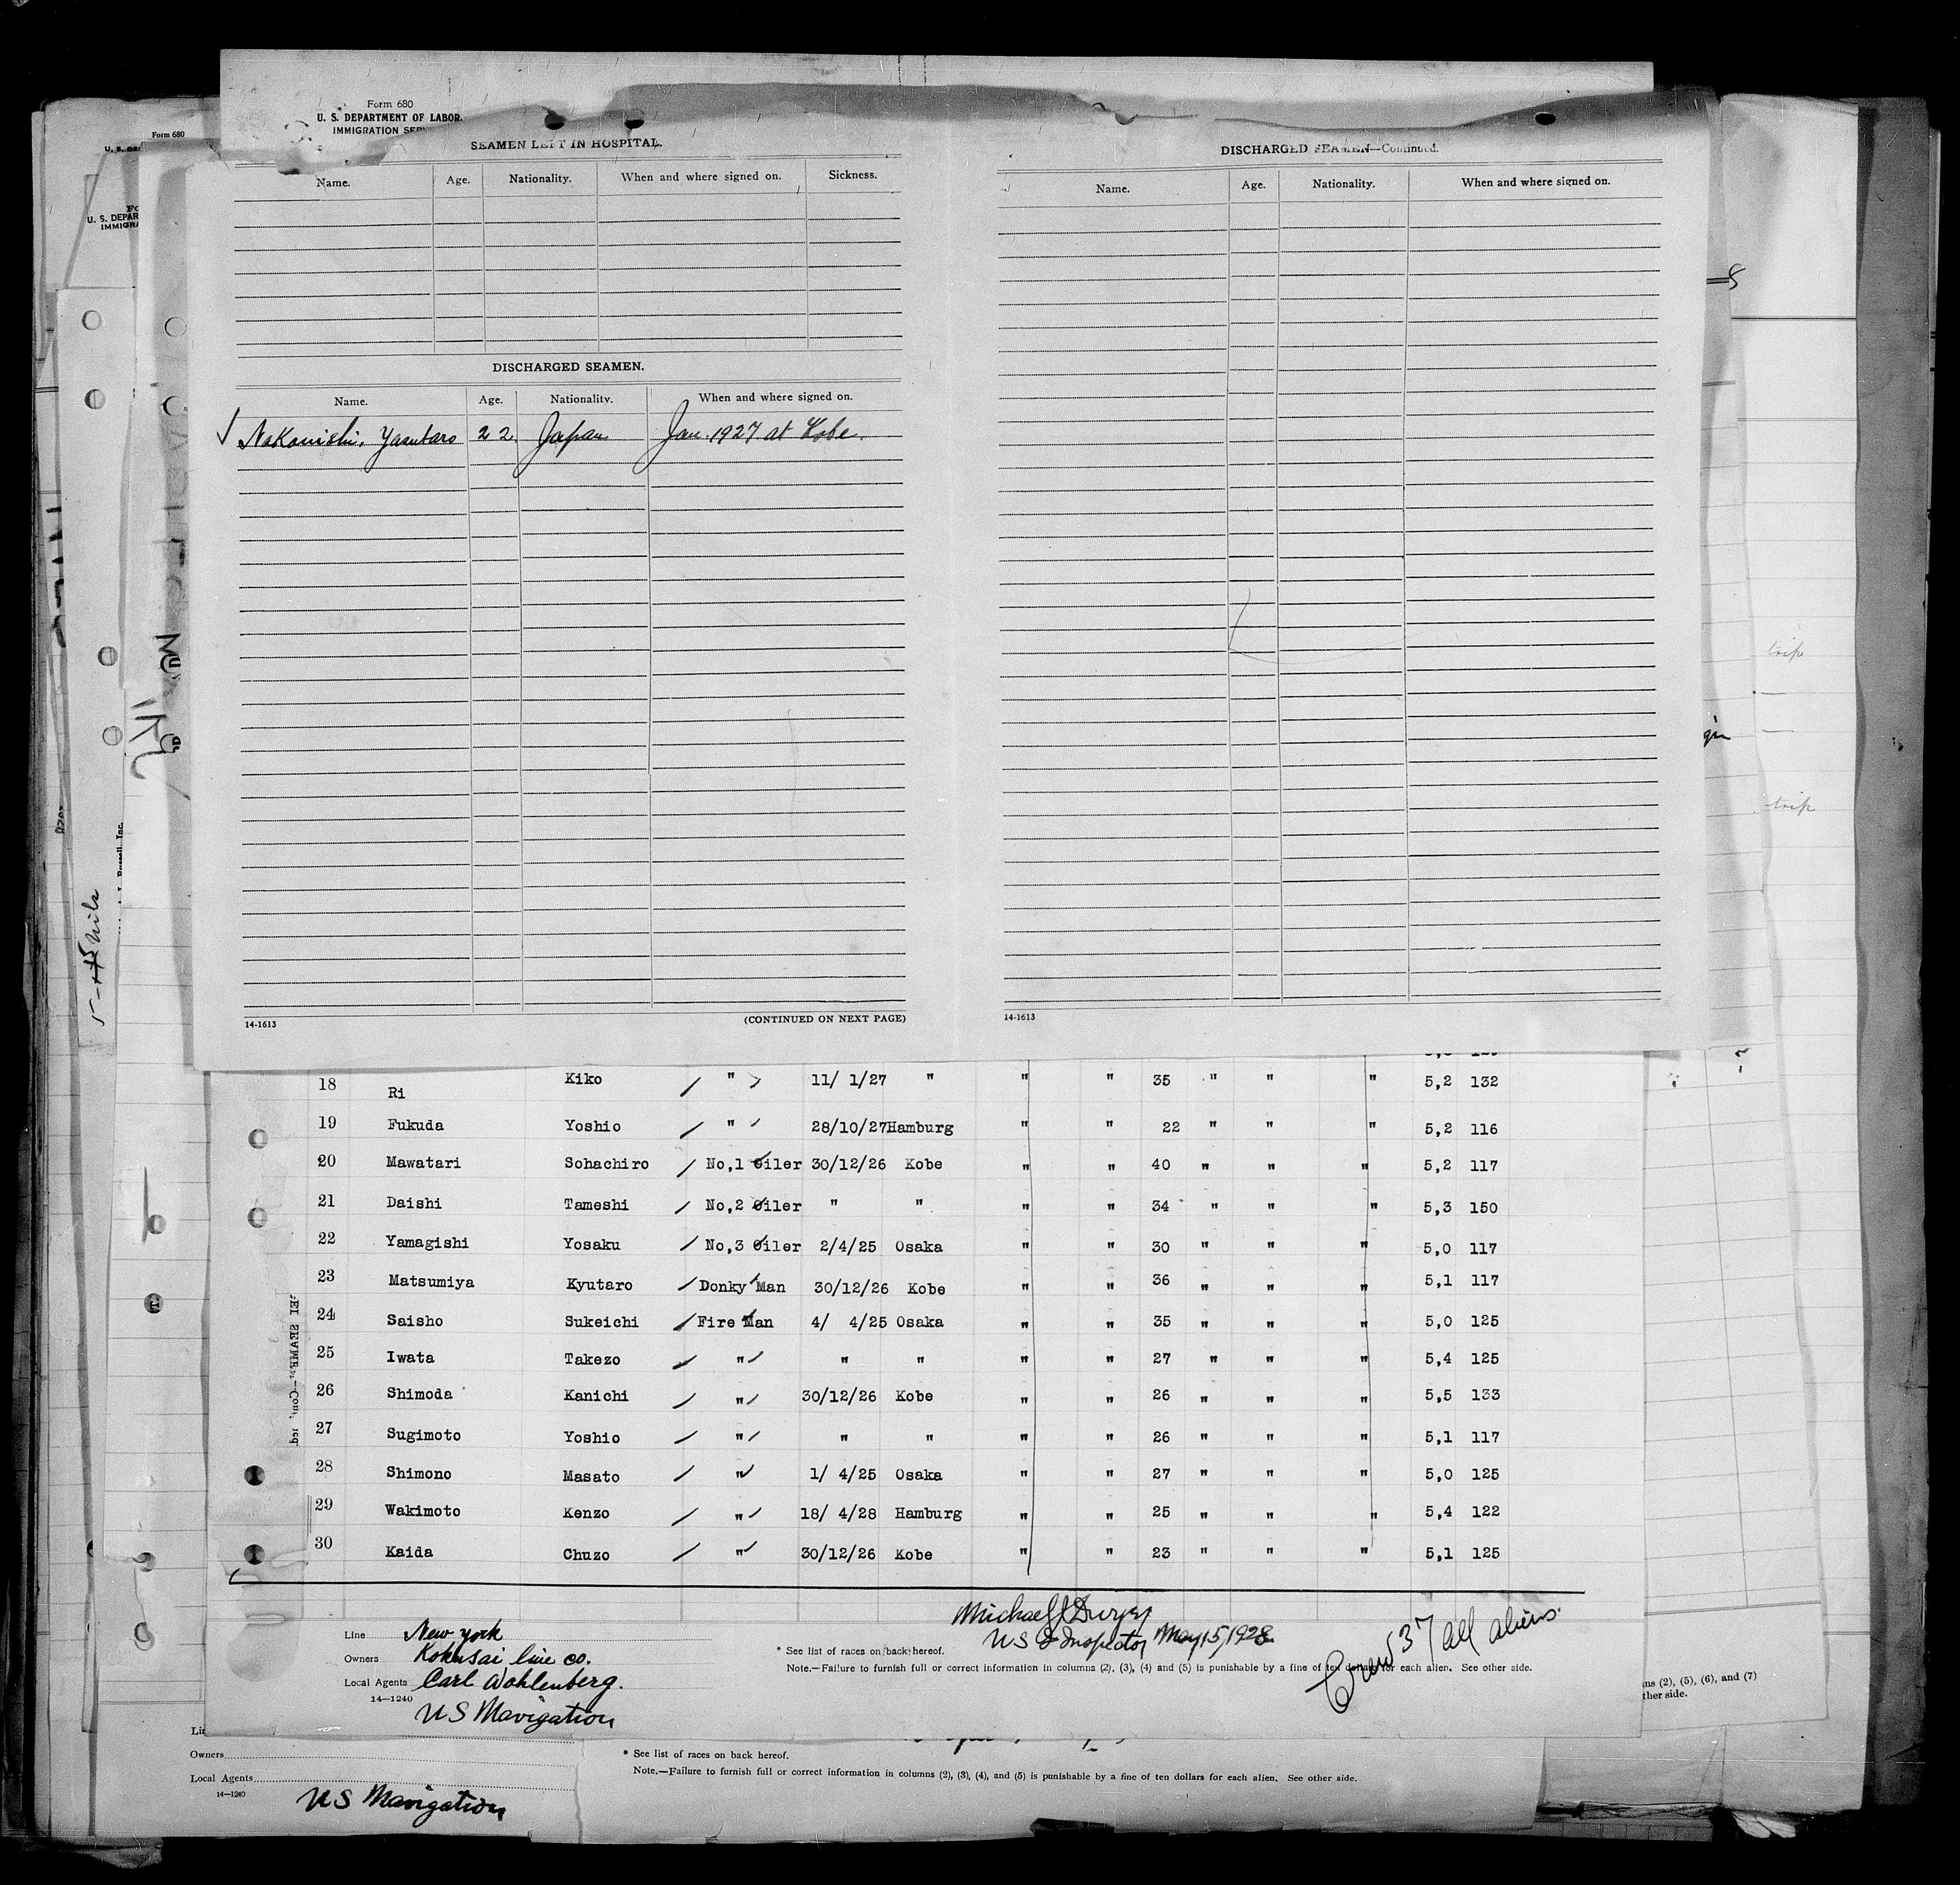 Form 680
U. S. DEPARTMENT OF LABOR
IMMIGRATION
SEAMEN LEFT IN HOSPITAL.
Name. Age. Nationality. When and where signed on. Sickness.
DISCHARGED SEAMEN.
Name. Age. Nationality. When and where signed on.
Nakanishi, Yasutaro 22 Japan Jan. 1927 at Kobe.
14-1613 (CONTINUED ON NEXT PAGE)
DISCHARGED SEAMEN—Continued.
Name. Age. Nationality. When and where signed on.
14-1613
Form 680
trip
trip
18 Ri Kiko " 11/ 1/27 " " " 35 " " " 5,2 132
19 Fukuda Yoshio " 28/10/27 Hamburg " " 22 " " " 5,2 116
20 Mawatari Sohachiro No,1 Oiler 30/12/26 Kobe " " 40 " " " 5,2 117
21 Daishi Tameshi No,2 Oiler " " " " 34 " " " 5,3 150
22 Yamagishi Yosaku No,3 Oiler 2/4/25 Osaka " " 30 " " " 5,0 117
23 Matsumiya Kyutaro Donky Man 30/12/26 Kobe " " 36 " " " 5,1 117
24 Saisho Sukeichi Fire Man 4/ 4/25 Osaka " " 35 " " " 5,0 125
25 Iwata Takezo " " " " " 27 " " " 5,4 125
26 Shimoda Kanichi " 30/12/26 Kobe " " 26 " " " 5,5 133
27 Sugimoto Yoshio " " " " " 26 " " " 5,1 117
28 Shimono Masato " 1/ 4/25 Osaka " " 27 " " " 5,0 125
29 Wakimoto Kenzo " 18/ 4/28 Hamburg " " 25 " " " 5,4 122
30 Kaida Chuzo " 30/12/26 Kobe " " 23 " " " 5,1 125
Line New York
Owners Kokusai line co.
Local Agents Carl Wohlenberg.
14—1240
US Navigation
Michael J Dwyer
US Inspector May 15, 1928
* See list of races on back hereof.
Note.—Failure to furnish full or correct information in columns (2), (3), (4) and (5) is punishable by a fine of ten dollars for each alien. See other side.
Crew 37 all aliens.
(2), (5), (6), and (7)
other side.
Owners
Local Agents
14—1240
US Navigation
* See list of races on back hereof.
Note.—Failure to furnish full or correct information in columns (2), (3), (4), and (5) is punishable by a fine of ten dollars for each alien. See other side.